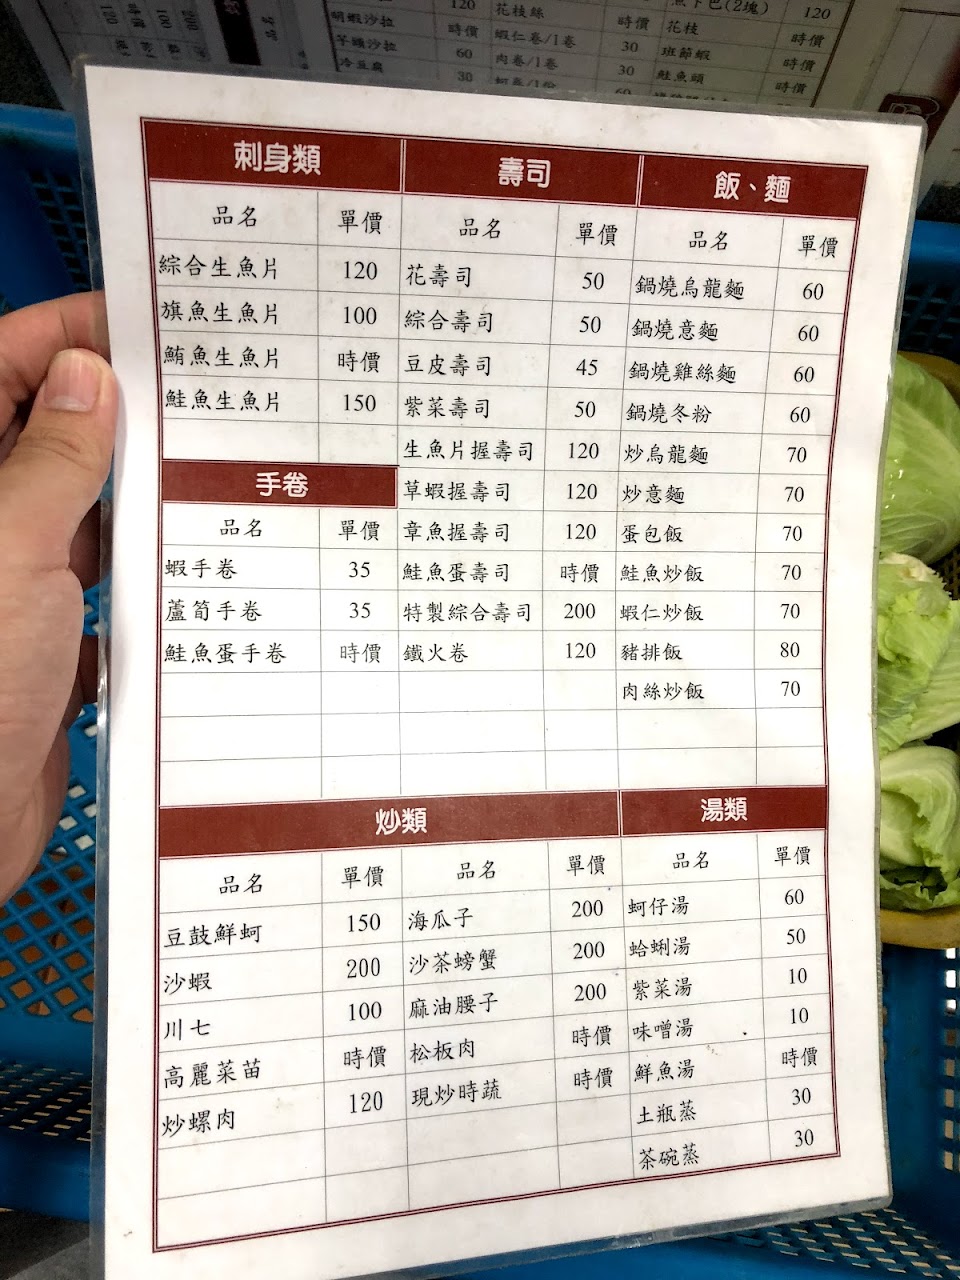 明蝦沙拉
芋頭沙拉 60
冷豆腐 30
120
花枝絲 時價
蝦仁卷/1卷 30
肉卷/1卷 30
60
(2塊) 120
花枝 時價
班節蝦 時價
鮭魚頭 時價
刺身類
品名 單價
綜合生魚片 120
旗魚生魚片 100
鮪魚生魚片 時價
鮭魚生魚片 150
手卷
品名 單價
蝦手卷 35
蘆筍手卷 35
鮭魚蛋手卷 時價
壽司
品名 單價
花壽司 50
綜合壽司 50
豆皮壽司 45
紫菜壽司 50
生魚片握壽司 120
草蝦握壽司 120
章魚握壽司 120
鮭魚蛋壽司 時價
特製綜合壽司 200
鐵火卷 120
飯、麵
品名 單價
鍋燒烏龍麵 60
鍋燒意麵 60
鍋燒雞絲麵 60
鍋燒冬粉 60
炒烏龍麵 70
炒意麵 70
蛋包飯 70
鮭魚炒飯 70
蝦仁炒飯 70
豬排飯 80
肉絲炒飯 70
炒類
品名 單價
豆鼓鮮蚵 150
沙蝦 200
川七 100
高麗菜苗 時價
炒螺肉 120
品名 單價
海瓜子 200
沙茶螃蟹 200
麻油腰子 200
松板肉 時價
現炒時蔬 時價
湯類
品名 單價
蚵仔湯 60
蛤蜊湯 50
紫菜湯 10
味噌湯 10
鮮魚湯 時價
土瓶蒸 30
茶碗蒸 30